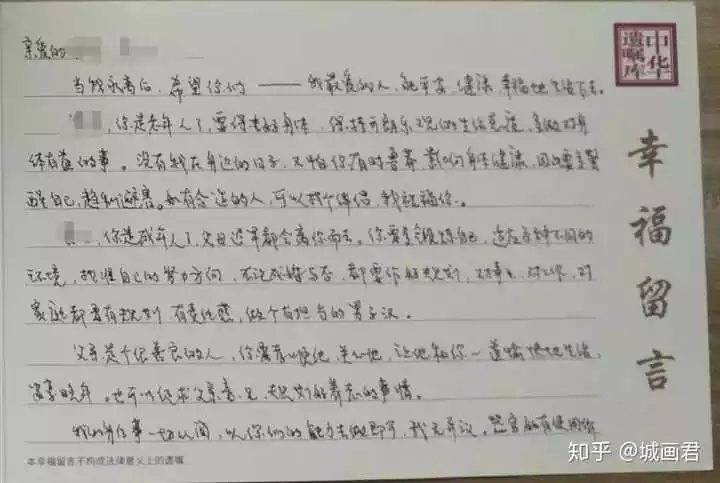 亲爱的
当我永离后,希望你们——我最爱的人,能平安、健康、幸福地生活下去。
,你是老年人了,要保养好身体,保持开朗乐观的生活态度,多做对身
体有益的事。没有我在身边的日子,又怕你有时 影响身体健康,因此要多提
醒自己,趋利避害。如有合适的人,可以找个伴侣,我祝福你。
,你是成年人了,父母迟早都会离你而去。你要多锻炼自己,适应各种不同的
环境,找准自己的努力方向,不论成婚与否,都要作好规划,对事业、对工作、对
家庭都要有规划,有责任感,做个有担当的男子汉。
父亲是个很善良的人,你要孝顺他,关心他,让他和你一道愉快地生活,
安享晚年。也可以征求父亲意见,规划好养老的事情。
我的身后事一切从简,以你们的能力去做即可,我无异议。器官如有使用价
中华
遗嘱库
幸福留言
本幸福留言不构成法律意义上的遗嘱
知乎 @城画君